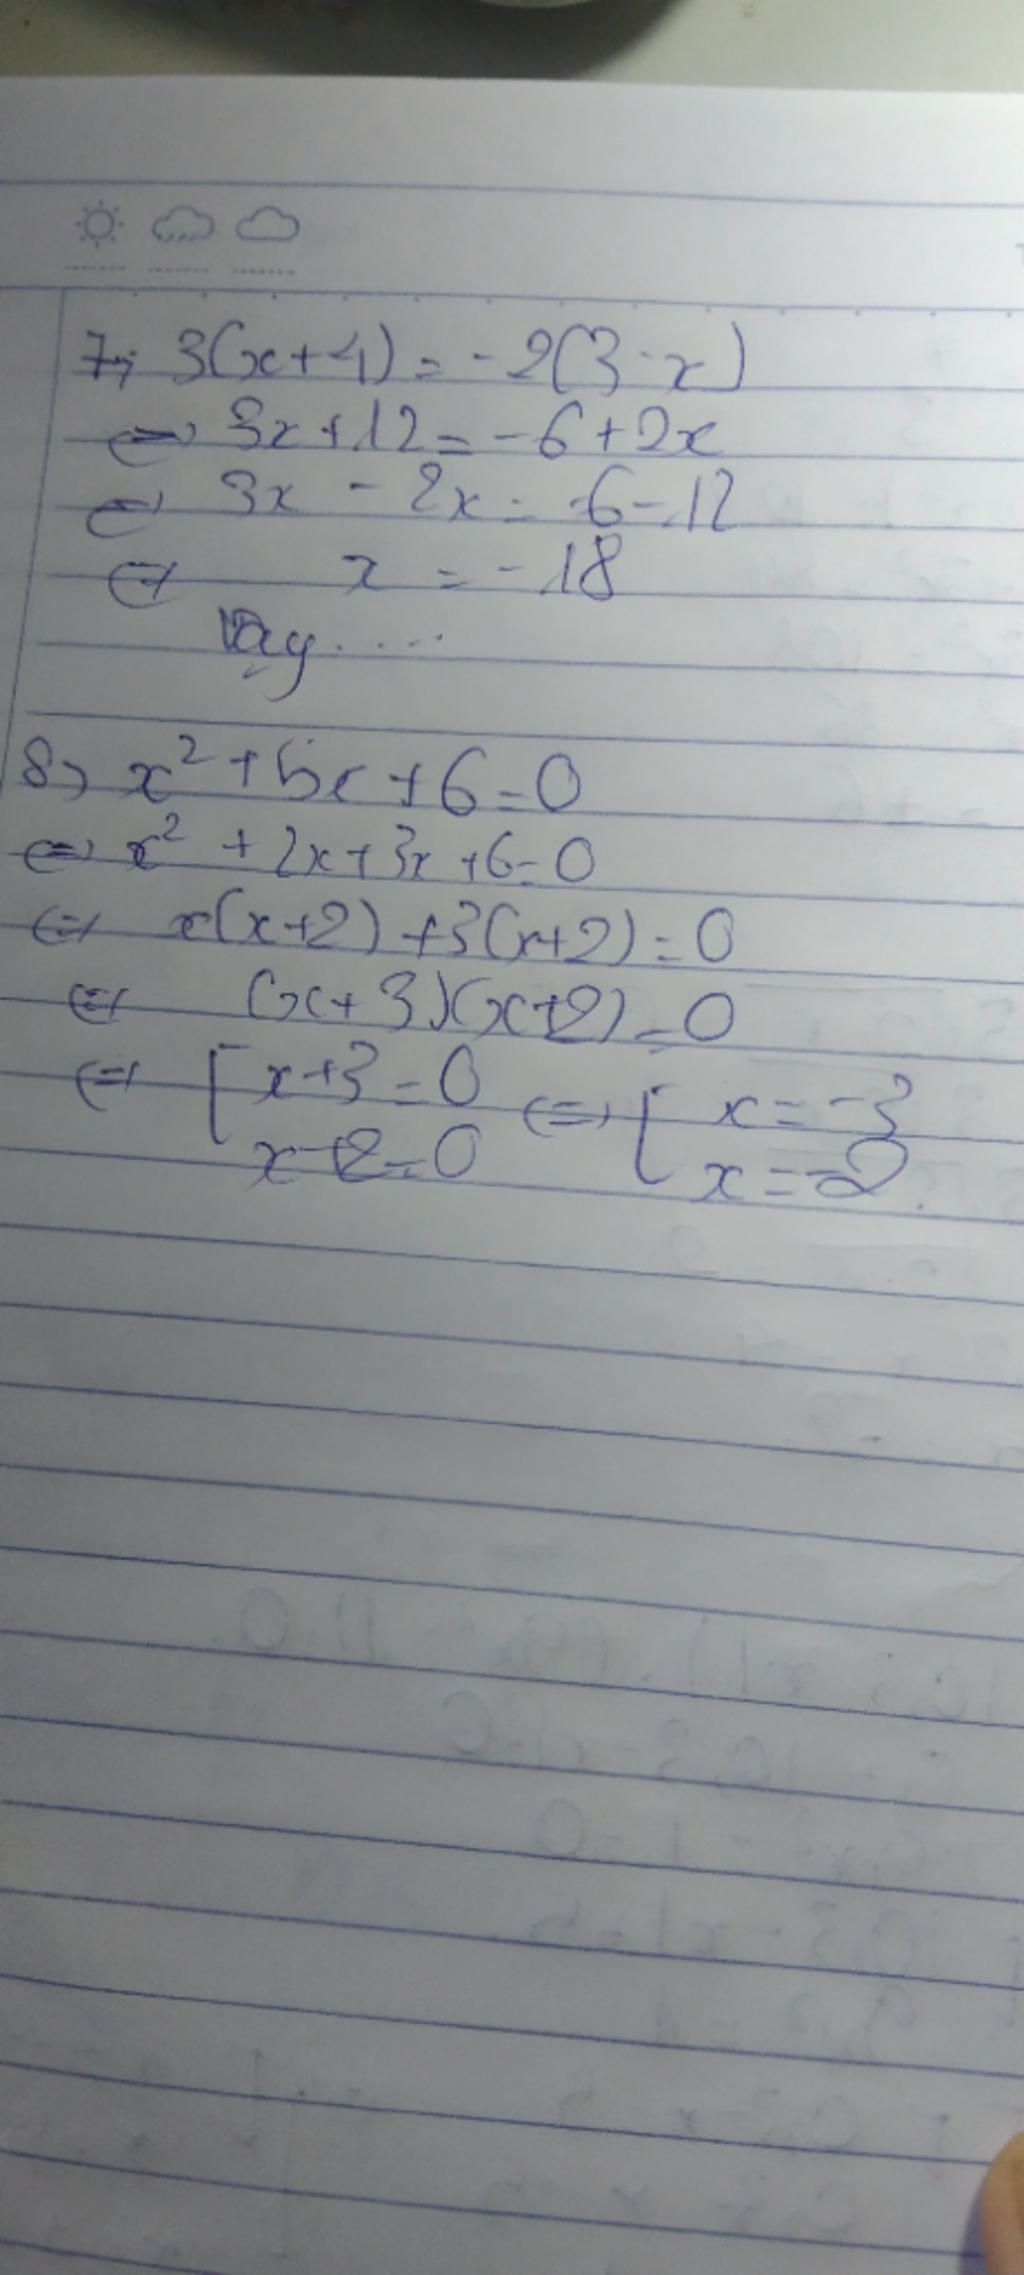 7, 3(x+4) = -2(3-x)
<=> 3x+12 = -6+2x
<=> 3x - 2x = -6-12
<=> x = -18
Vậy.....
8, x² + 5x + 6 = 0
<=> x² + 2x + 3x + 6 = 0
<=> x(x+2) + 3(x+2) = 0
<=> (x+3)(x+2) = 0
<=> [ x+3 = 0 <=> [ x = -3
x+2 = 0 x = -2